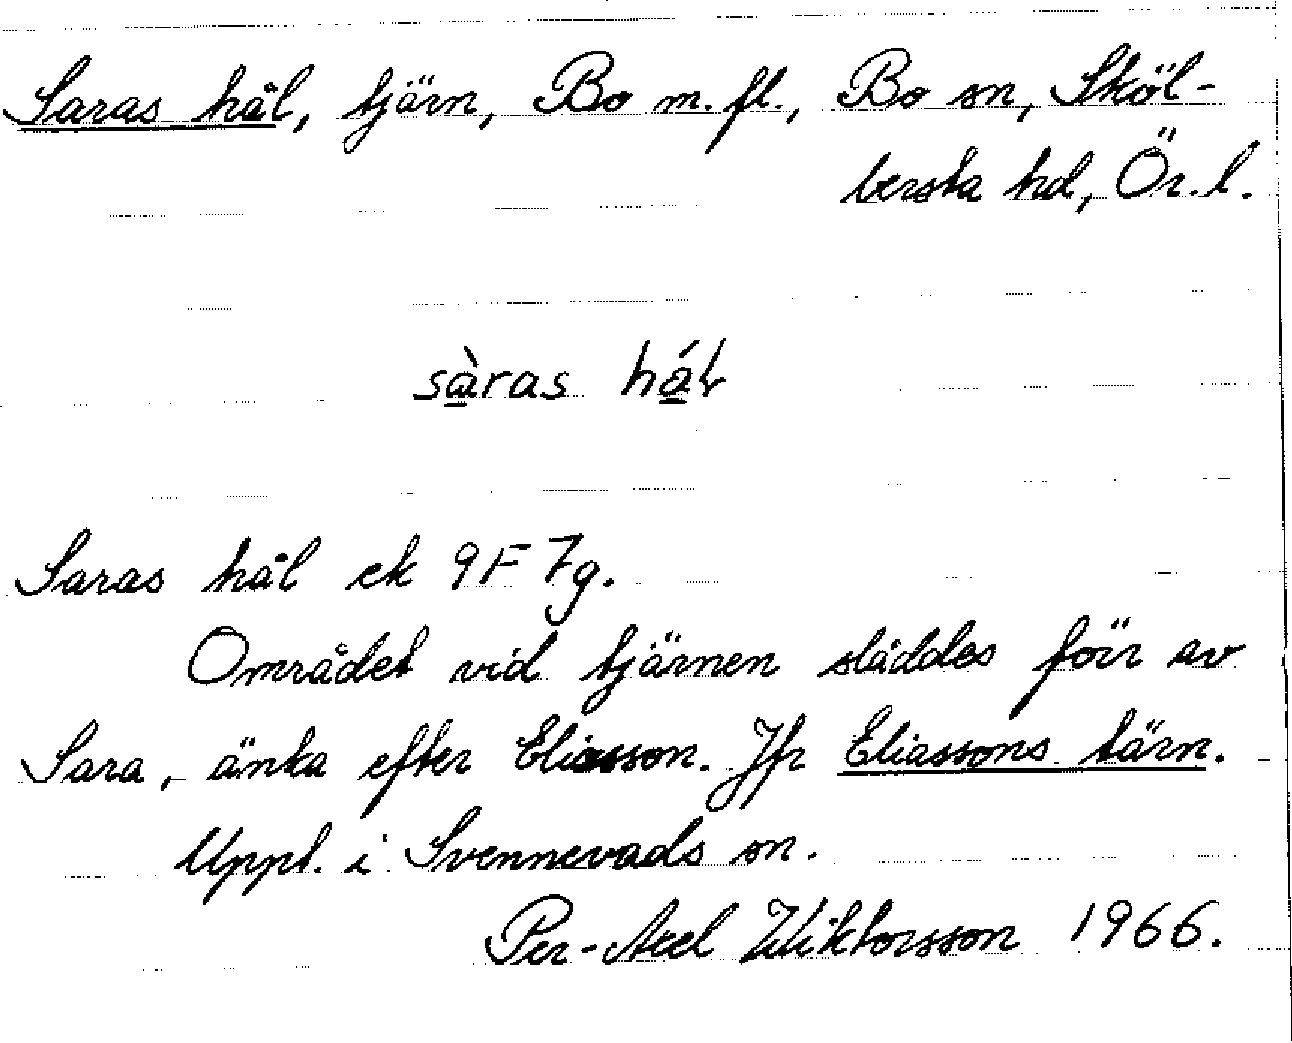 Saras hål, tjärn, Bo m. fl., Bo sn, Sköl-
lersta hd, Ör. l.
sàras hál
Saras hål ek 9F 7g.
Området vid tjärnen städdes förr av
Sara, änka efter Eliasson. Jfr Eliassons tärn.
Uppt. i Svennevads sn.
Per-Axel Wiktorsson 1966.